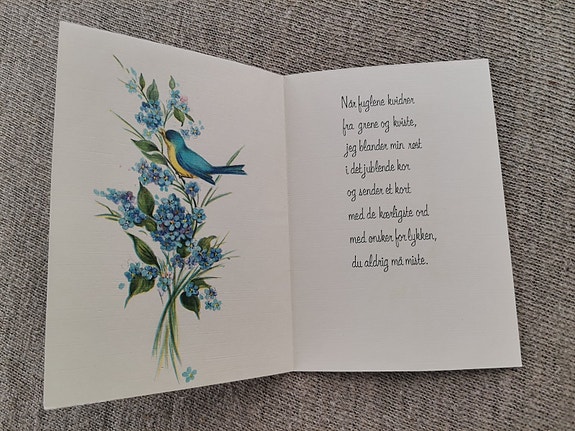 Når fuglene kvidrer
fra grene og kviste,
jeg blander min røst
i det jublende kor
og sender et kort
med de kærligste ord
med ønsker for lykken,
du aldrig må miste.